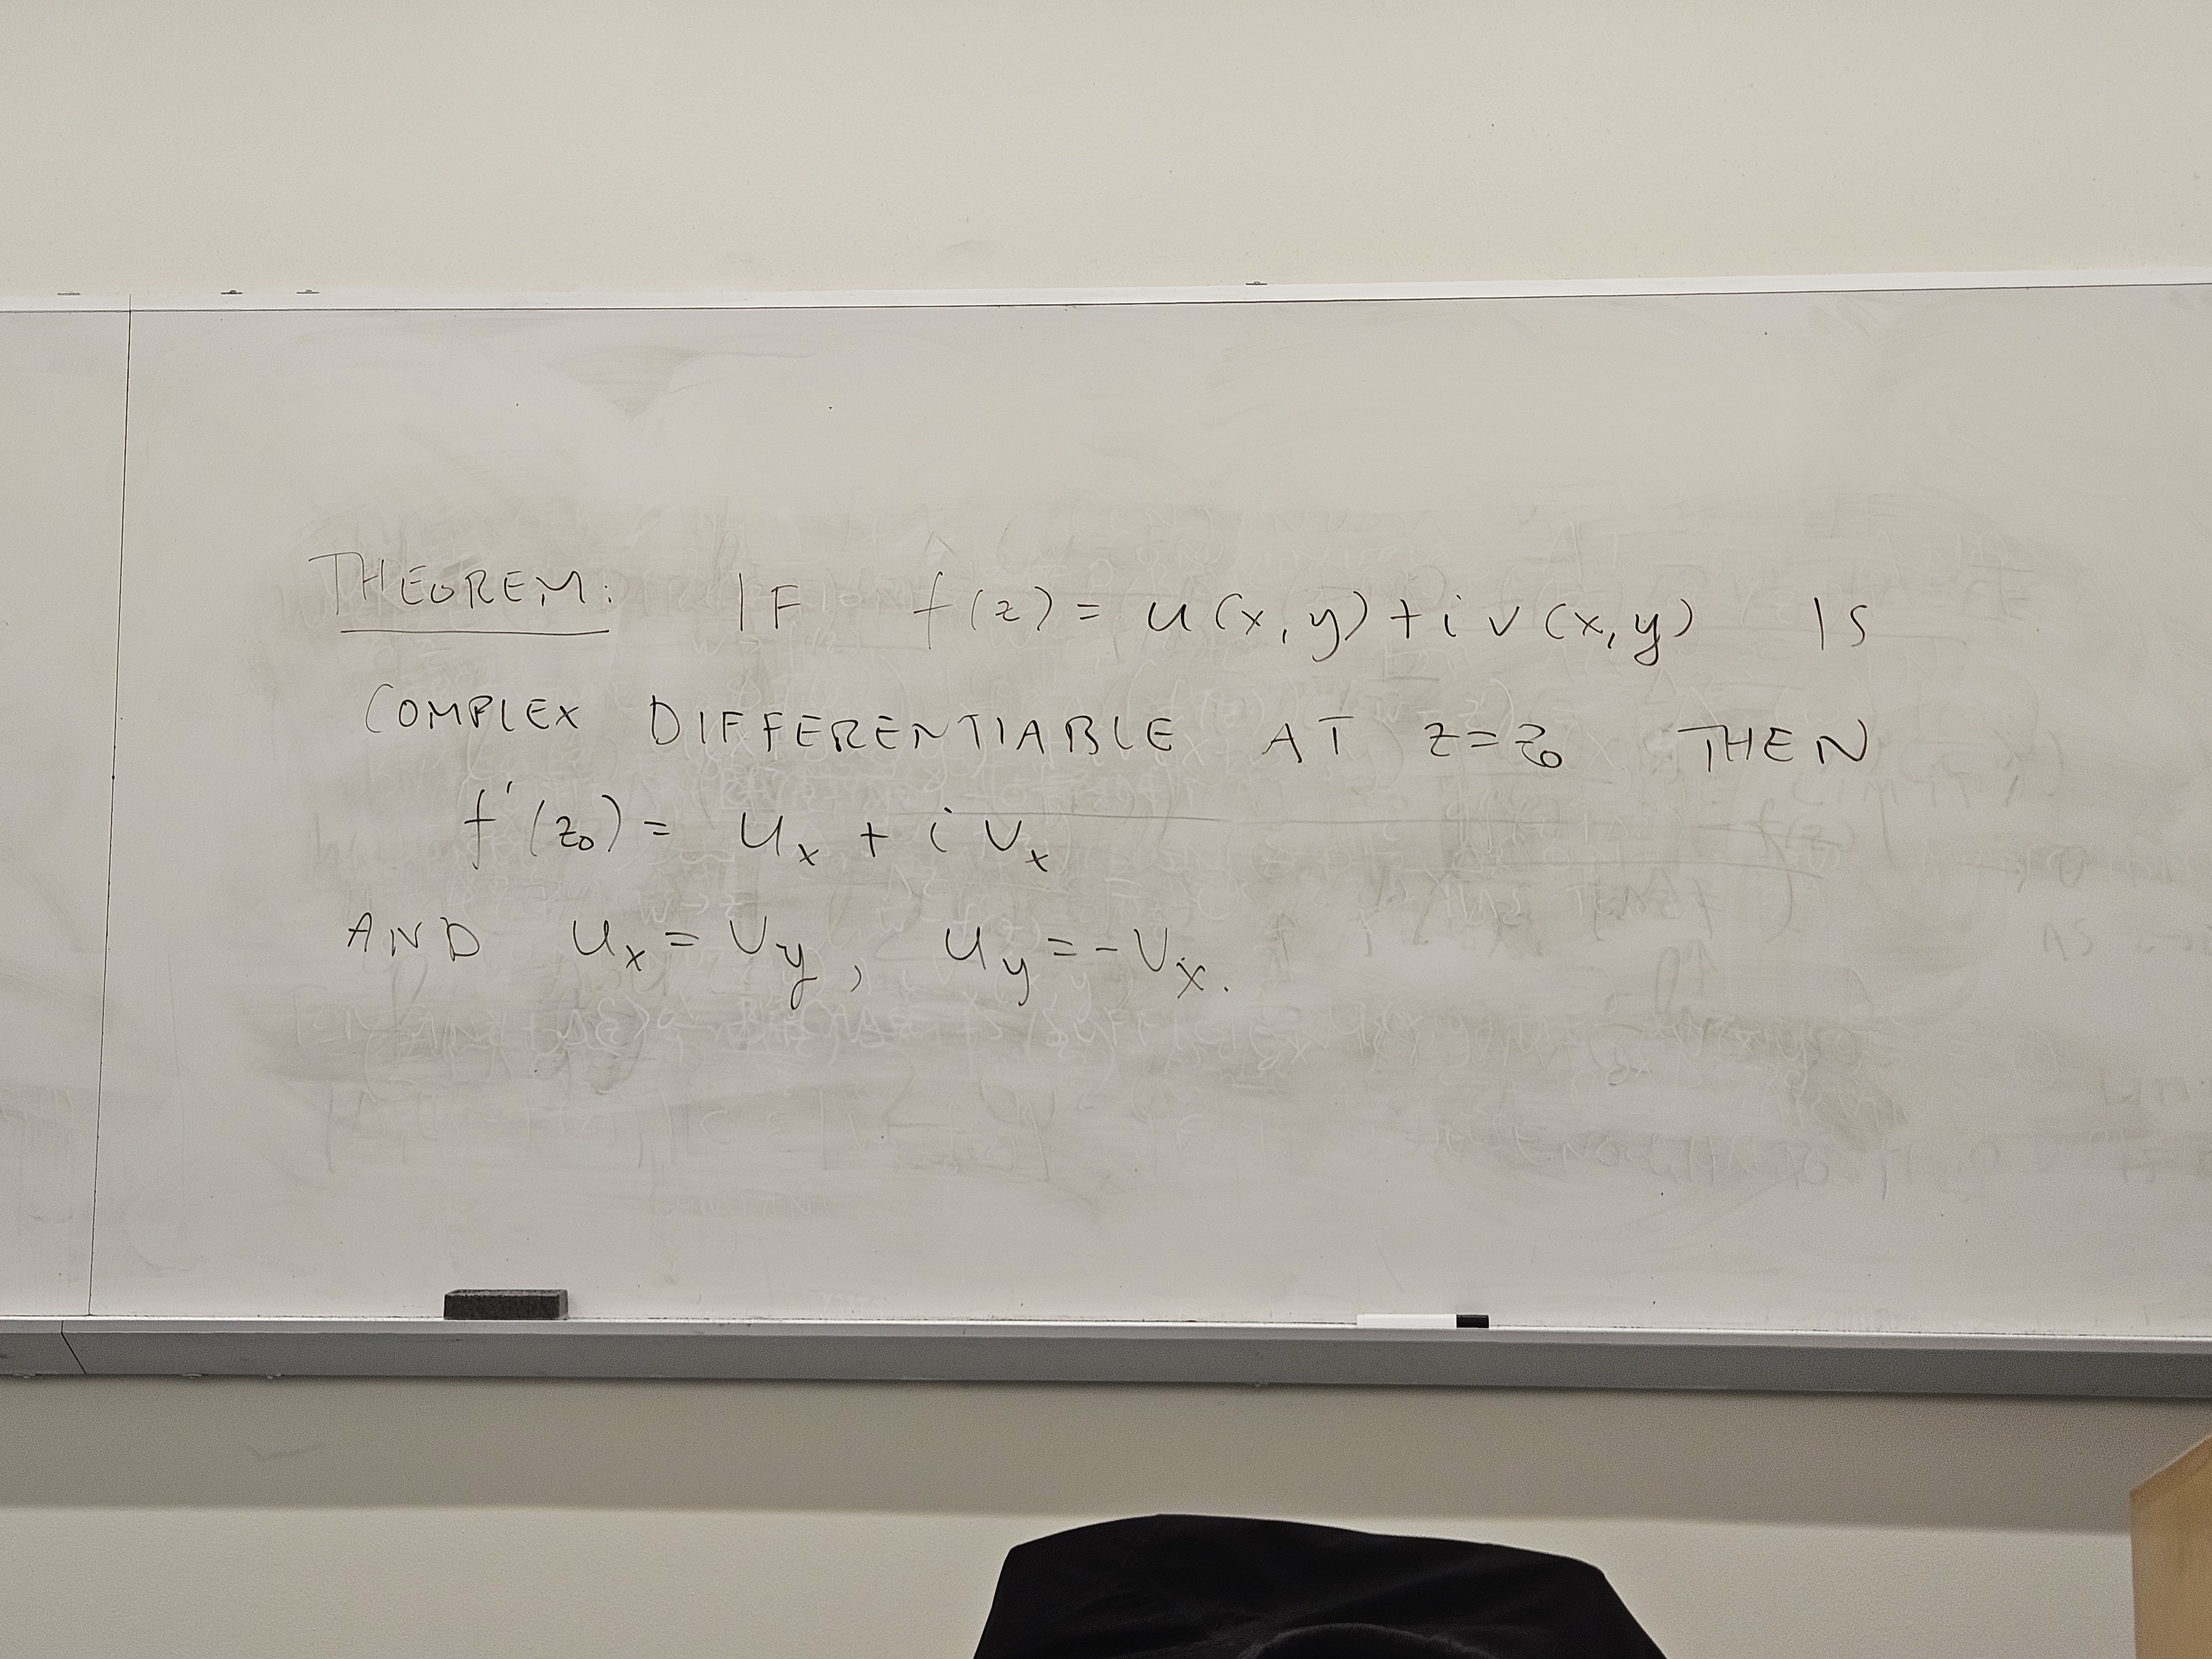 THEOREM: IF f(z) = u(x,y) + i v(x,y) IS
COMPLEX DIFFERENTIABLE AT z=z₀ THEN
f'(z₀) = uₓ + i vₓ
AND uₓ = v_y, u_y = -vₓ.